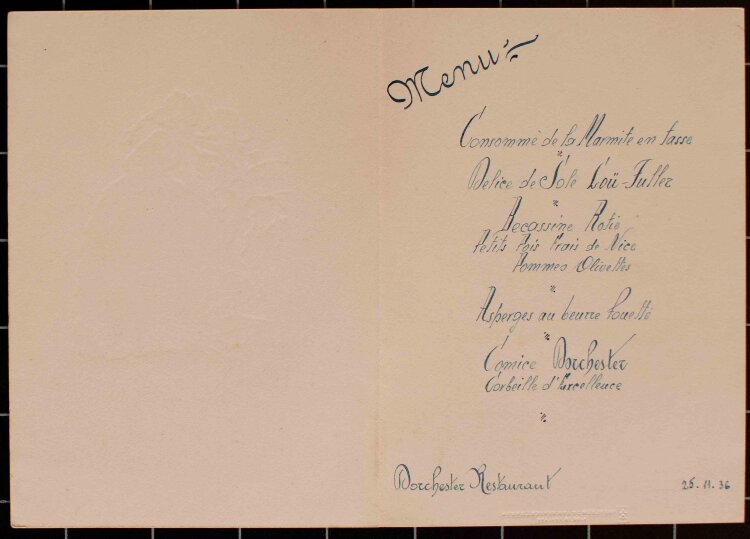 Menu
Consommé de la Marmite en tasse
Délice de Sole Loïe Fuller
Becassine Rotie
Petits Pois Frais de Nice
Pommes Olivettes
Asperges au beurre fouetté
Comice Dorchester
Corbeille d'Excellence
Dorchester Restaurant
25.11.36